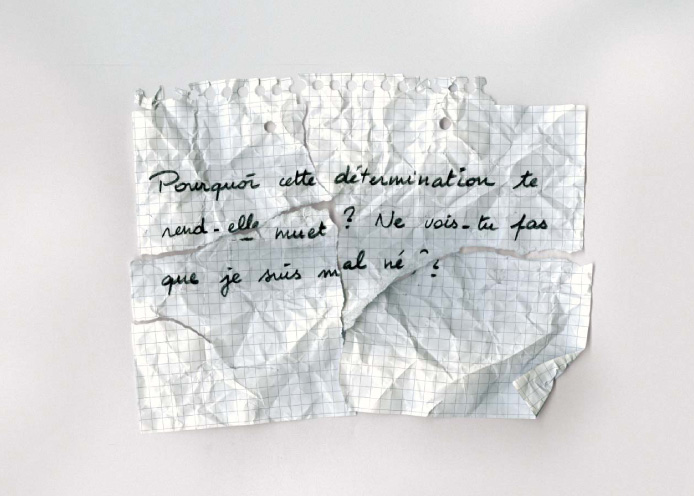 Pourquoi cette détermination te
rend-elle muet ? Ne vois-tu pas
que je suis mal né ?